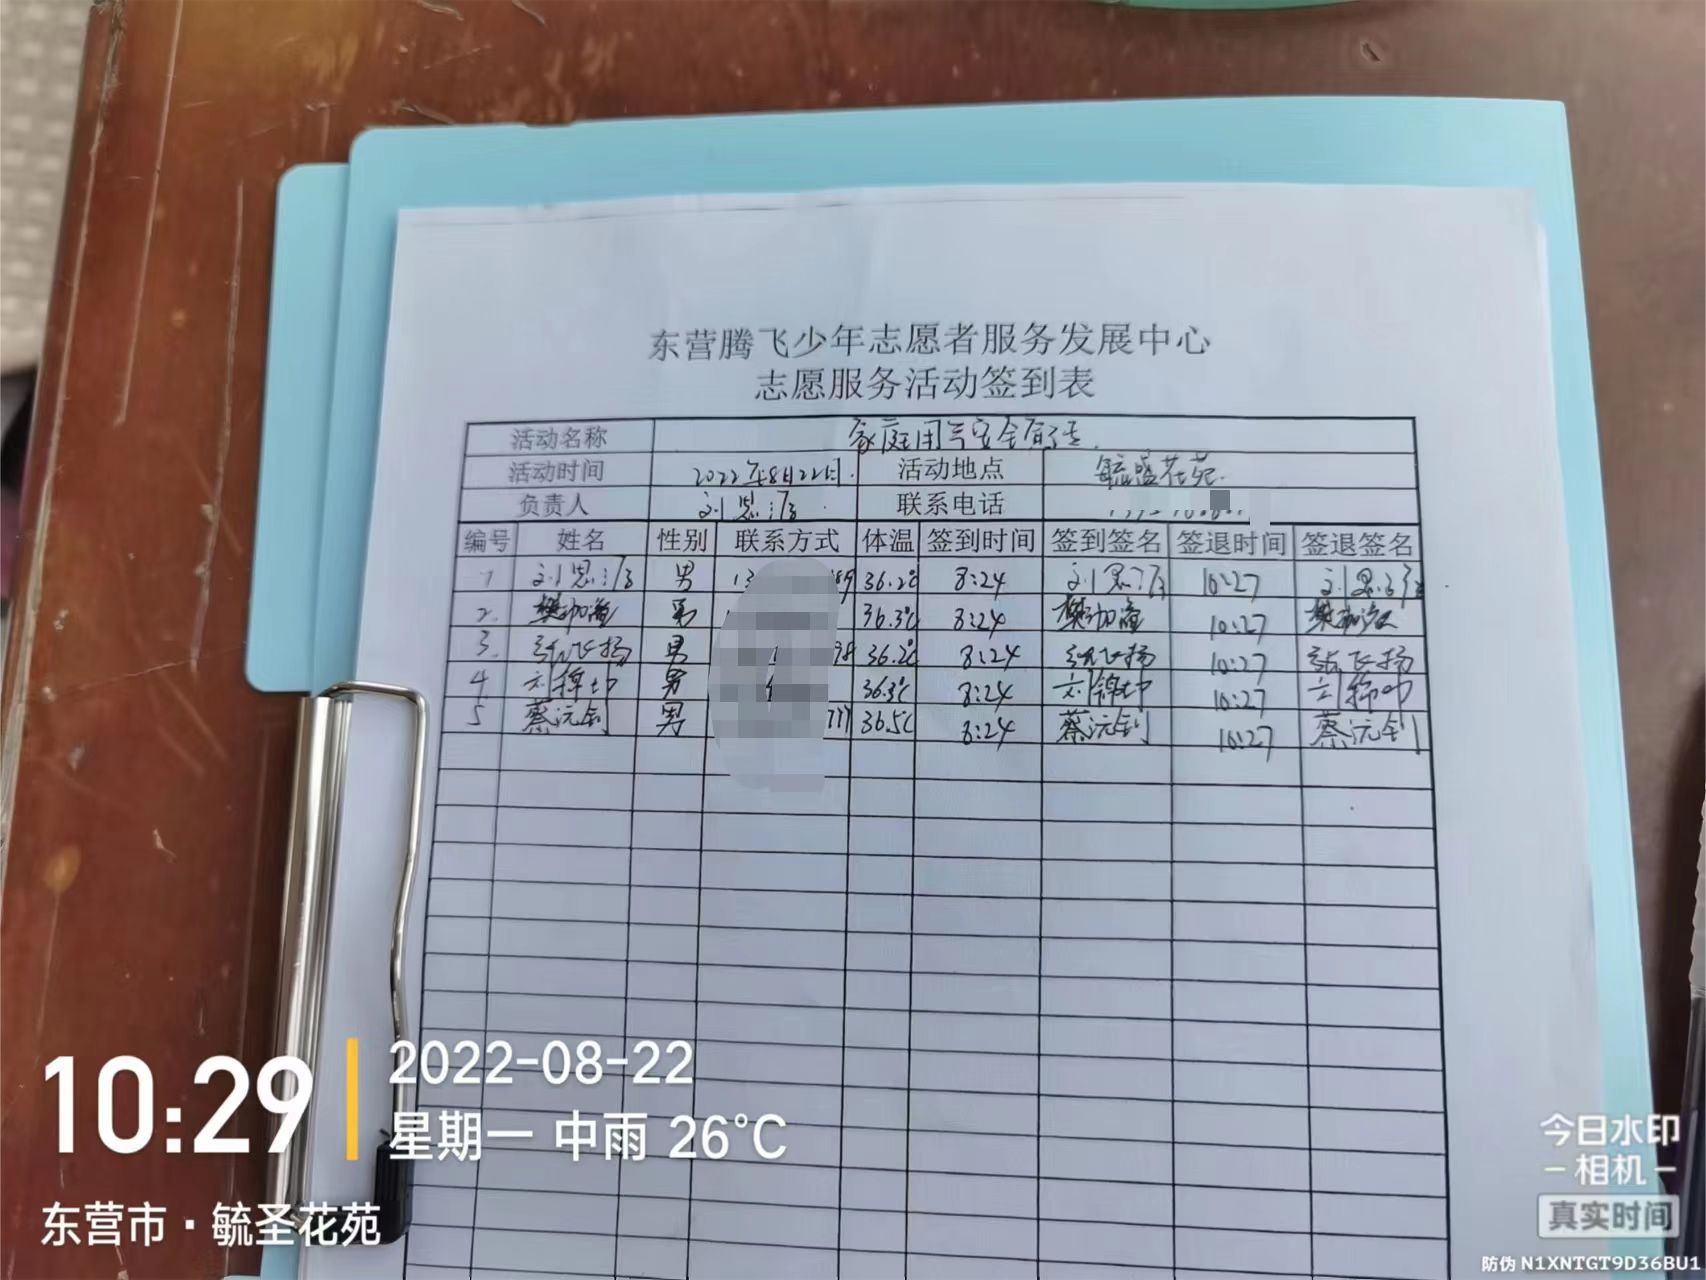 东营腾飞少年志愿者服务发展中心
志愿服务活动签到表
活动名称 家庭用气安全宣传
活动时间 2022年8月22日 活动地点 毓盛花苑
负责人 刘思 联系电话
编号 姓名 性别 联系方式 体温 签到时间 签到签名 签退时间 签退签名
1 刘思 男 13 89 36.2℃ 8:24 刘思 10:27 刘思
2. 樊 男 36.3℃ 8:24 樊 10:27 樊
3. 张飞扬 男 98 36.2℃ 8:24 张飞扬 10:27 张飞扬
4 刘锦 男 36.3℃ 8:24 刘锦 10:27 刘锦
5 蔡沅钊 男 777 36.5℃ 8:24 蔡沅钊 10:27 蔡沅钊
10:29
2022-08-22
星期一 中雨 26°C
东营市·毓圣花苑
今日水印
-相机-
真实时间
防伪 N1XNTGT9D36BU1